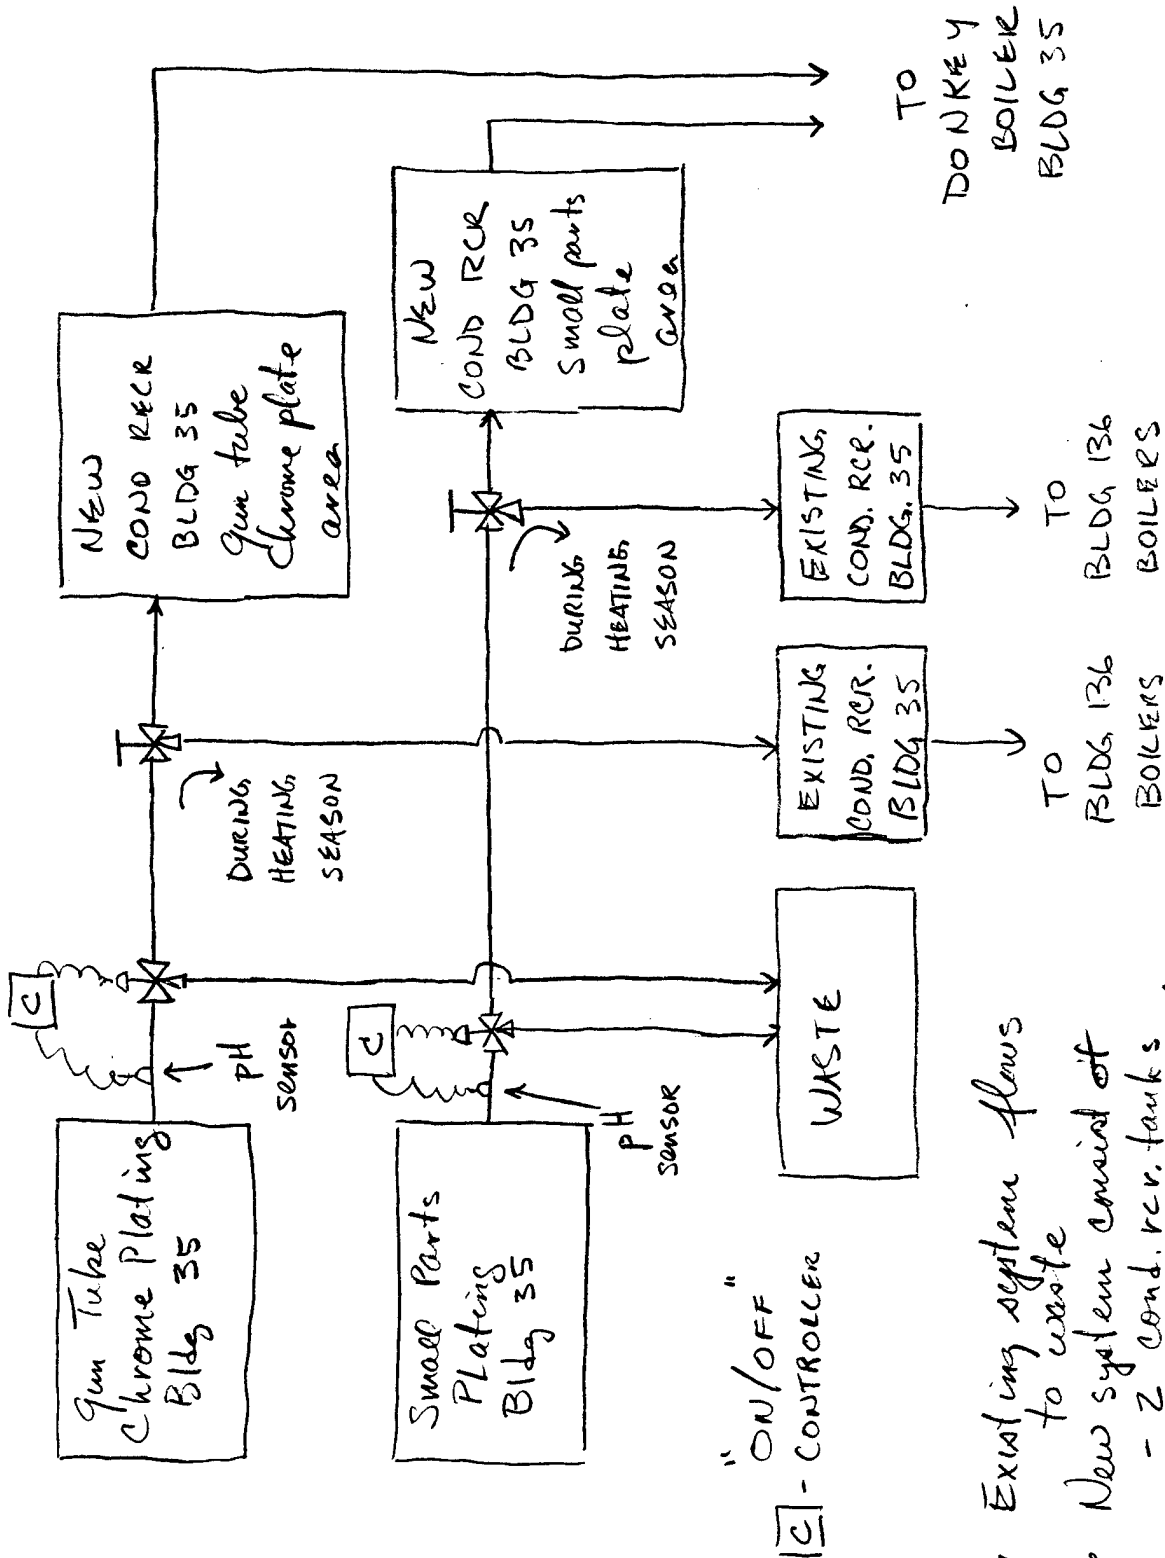 Gun Tube
Chrome Plating
Bldg 35
C
pH
sensor
DURING
HEATING
SEASON
NEW
COND RECR
BLDG 35
Gun tube
Chrome plate
area
Small Parts
Plating
Bldg 35
C
pH
SENSOR
DURING
HEATING
SEASON
NEW
COND RCR
BLDG 35
Small parts
plate
area
WASTE
EXISTING
COND. RCR.
BLDG 35
EXISTING
COND. RCR.
BLDG. 35
TO
BLDG 136
BOILERS
TO
BLDG 136
BOILERS
TO
DONKEY
BOILER
BLDG 35
"ON/OFF"
C - CONTROLLER
Existing system flows
to waste
New system consist of
- 2 cond. rcr. tanks